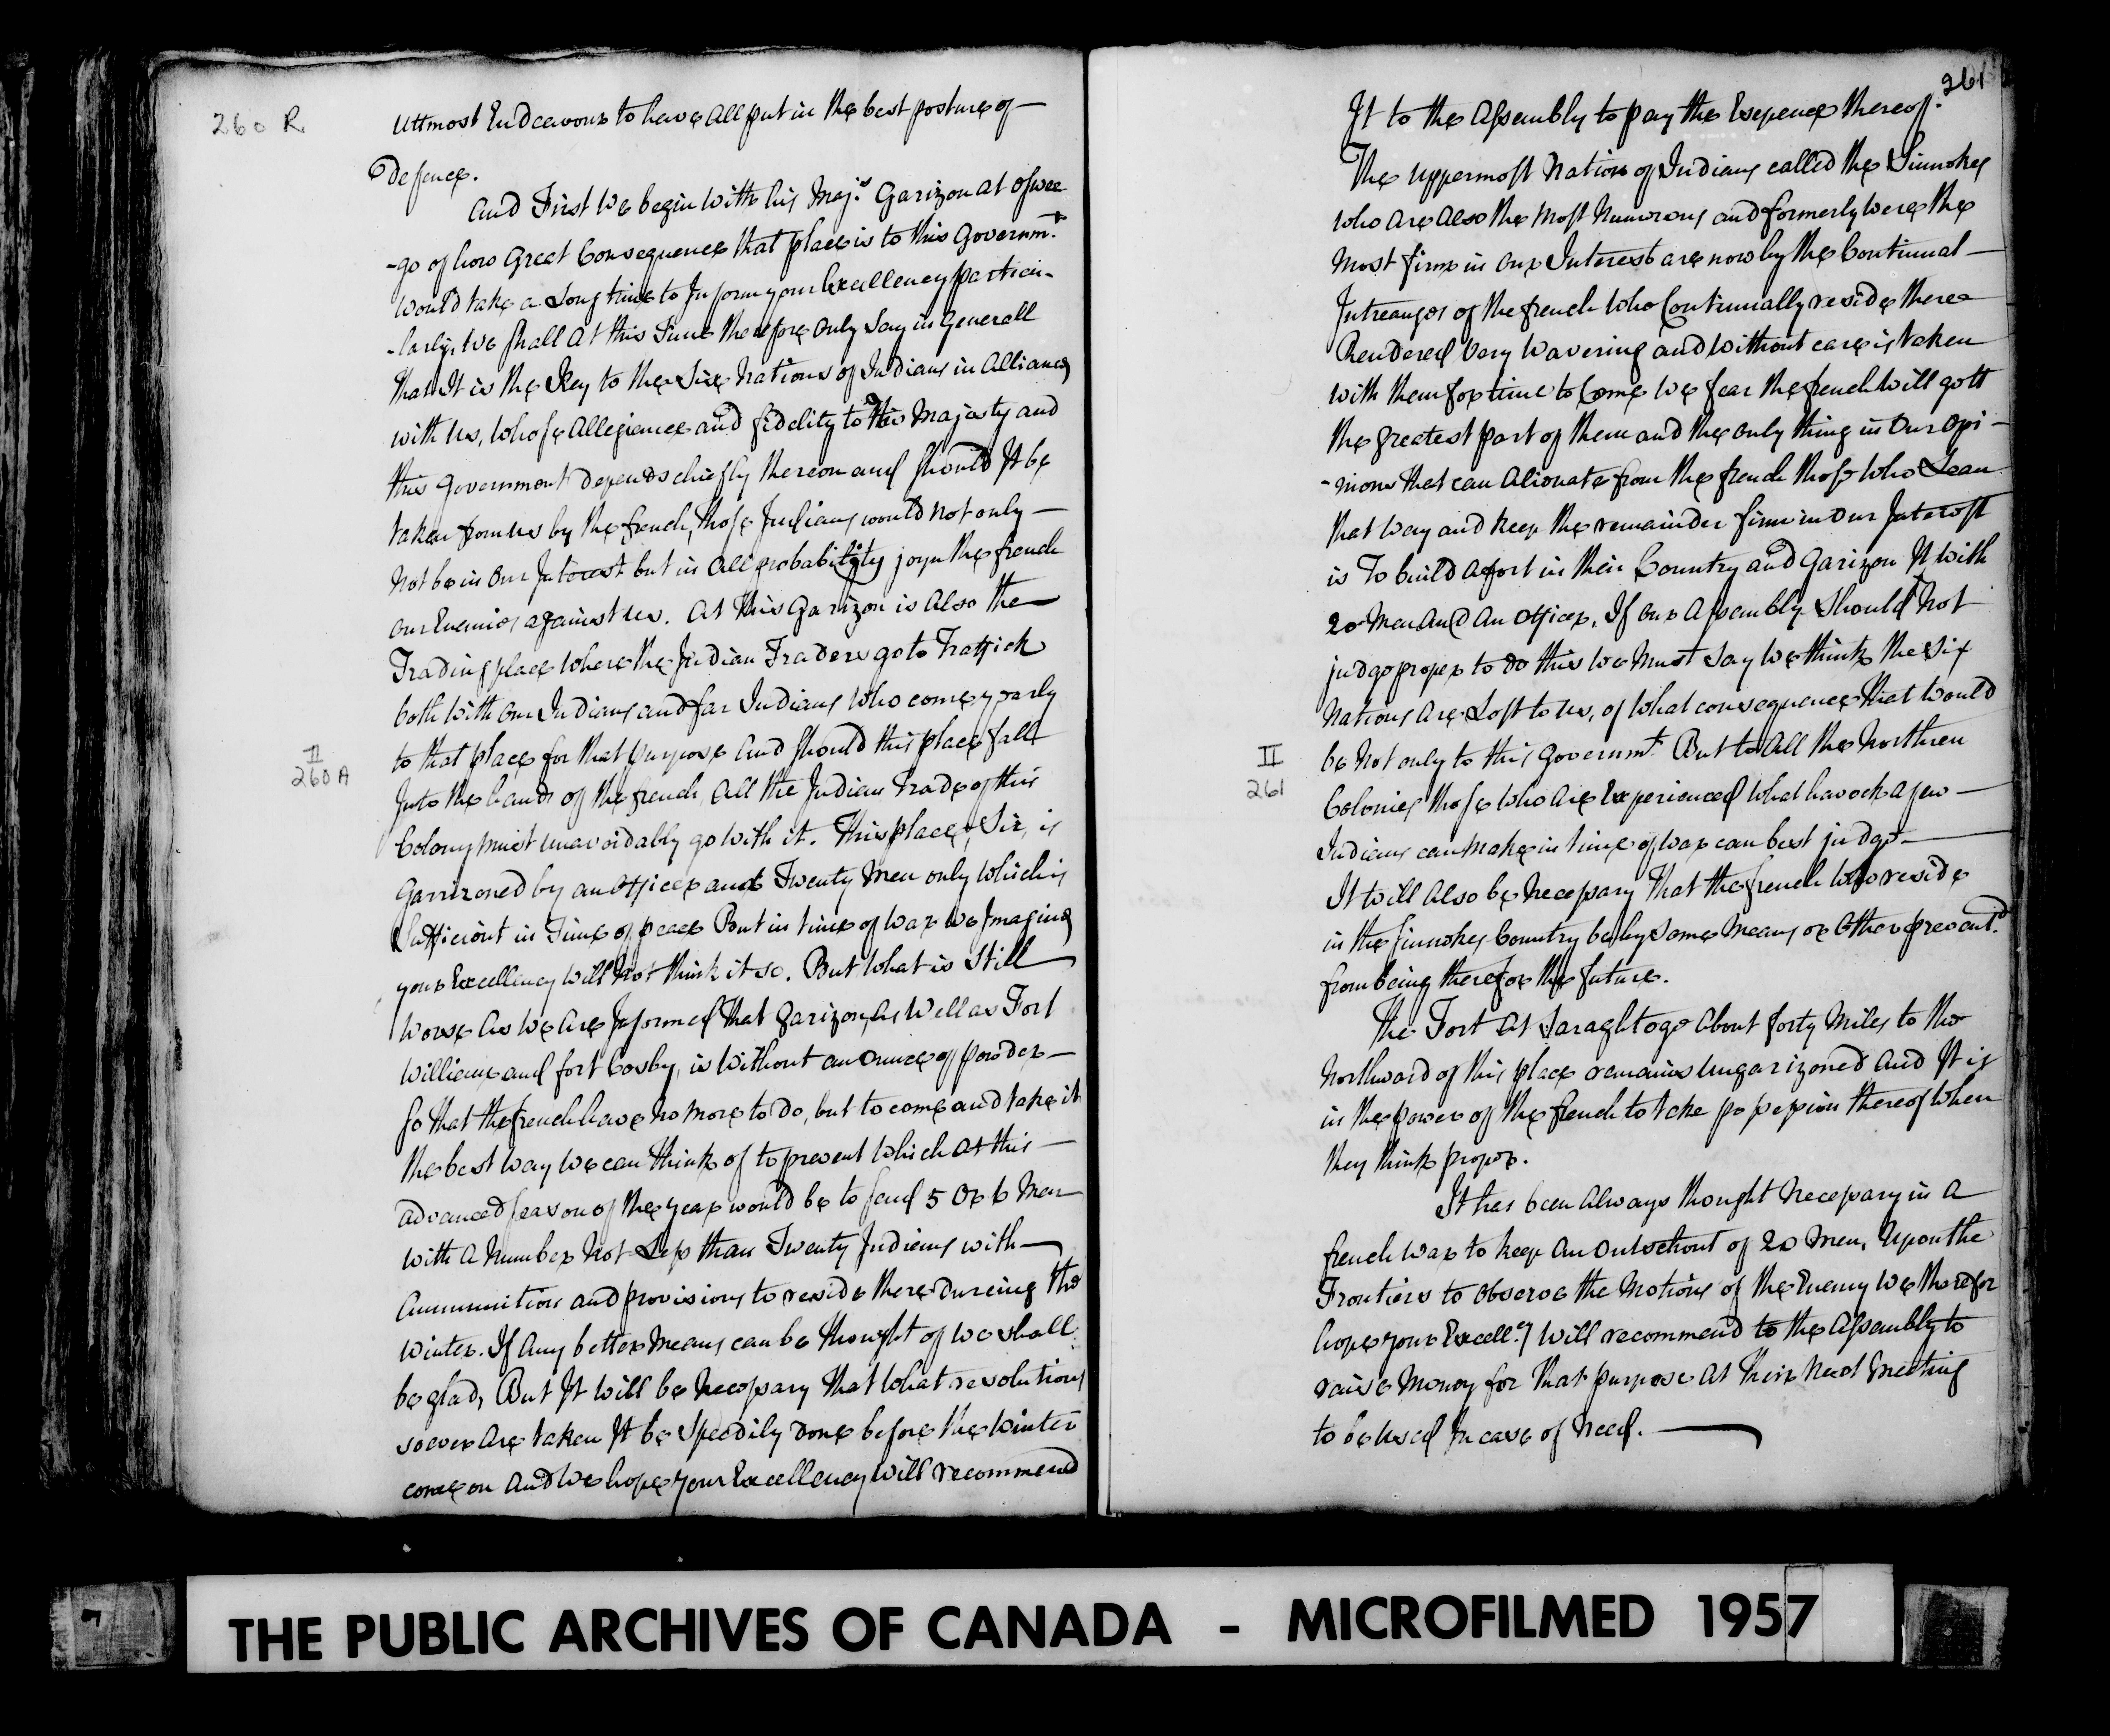 260 R
uttmost Endeavours to have all put in the best posture of —
Defence.
and First we begin with his Maj.s Garizon at oswee
-go of how Great Consequence that place is to this Governm.t
would take a Long time to Inform your Excellency particu-
-larly, we shall at this Time therefore only Say in Generall
that It is the Key to the Six Nations of Indians in Alliance
with us, whose Allegiance and fidelity to His Majesty and
this Government depends chiefly thereon and should It be
taken from us by the french, those Indians would not only —
Not be in our Interest but in all probability joyn the french
our Enemies against us. At this Garizon is Also the
Trading place where the Indian Traders go to Traffick
both with our Indians and far Indians who come yearly
to that place for that purpose and should this place fall
II
260 A
Into the hands of the french, all the Indian Trade of this
Colony must unavoidably go with it. This place, Sir, is
Garrizoned by an Officer and Twenty Men only which is
Sufficient in Time of peace But in time of war we Imagine
your Excellency will Not think it so. But what is Still
Worse As we Are Informed that Garizon, As Well as Fort
William and fort Cosby, is without an Ounce of powder —
So that the french have No more to do, but to come and take it
the best way we can think of to prevent which at this —
advanced season of the year would be to send 5 Or 6 Men
with a Number Not Less than Twenty Indians with —
Ammunition and provisions to reside there dureing the
winter. If Any better Means can be thought of we shall
be glad, But It will be Necessary that what resolutions
soever Are taken It be Speedily done before the Winter
come on And we hope your Excellency will recommend
261
It to the Assembly to pay the Expence thereof.
The uppermost Nation of Indians called the Sinnokes
who are also the Most Numerous and formerly were the
Most firm in our Interest are now by the Continual —
Intreauges of the french who Continually reside there
Rendered Very Wavering and without care is taken
with them for time to Come we fear the french will gett
the greatest part of them and the only thing in Our Opi -
- nions that can Alienate from the french those who Lean
that way and keep the remainder firm in Our Interest
is To build a fort in their Country and Garizon It with
20 Men And An Officer. If our Assembly Should Not
judge proper to do this we Must Say we think the Six
Nations Are Lost to us, of what consequence that would
be Not only to this Governm.t But to All the Northren
II
261
Colonies those who Are Experienced what havock a few —
Indians can Make in time of war can best judge —
It will Also be Necessary that the french who reside
in the Sinnokes Country be by some Means or Other prevent.d
from being there for the future.
The Fort At Saraghtoge About forty Miles to the
Northward of this place remains Ungarizoned and It is
in the power of the french to take possession thereof when
they think proper.
It has been Always thought Necessary in a
french war to keep An Outschout of 20 Men, Upon the
Frontiers to Observe the Motions of the Enemy we therefor
hope your Excell.cy will recommend to the Assembly to
raise Money for that purpose At their Next Meeting
to be Used In case of Need. —
THE PUBLIC ARCHIVES OF CANADA - MICROFILMED 1957